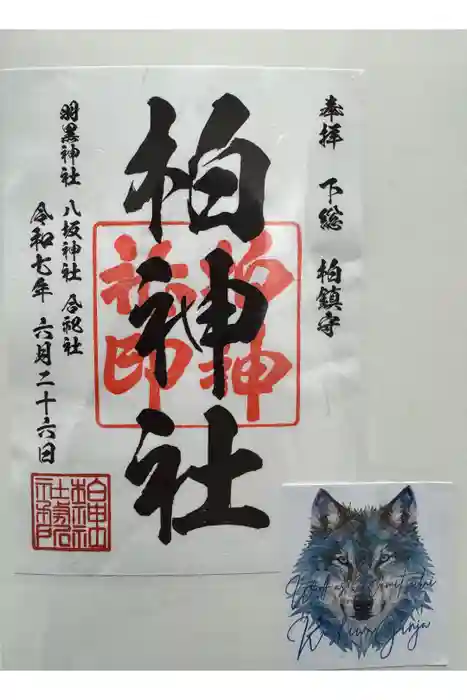 奉拝 下総 柏鎮守
柏神社
柏神社印
羽黒神社 八坂神社 合祀社
令和七年 六月二十六日
柏神社
社務所
之印